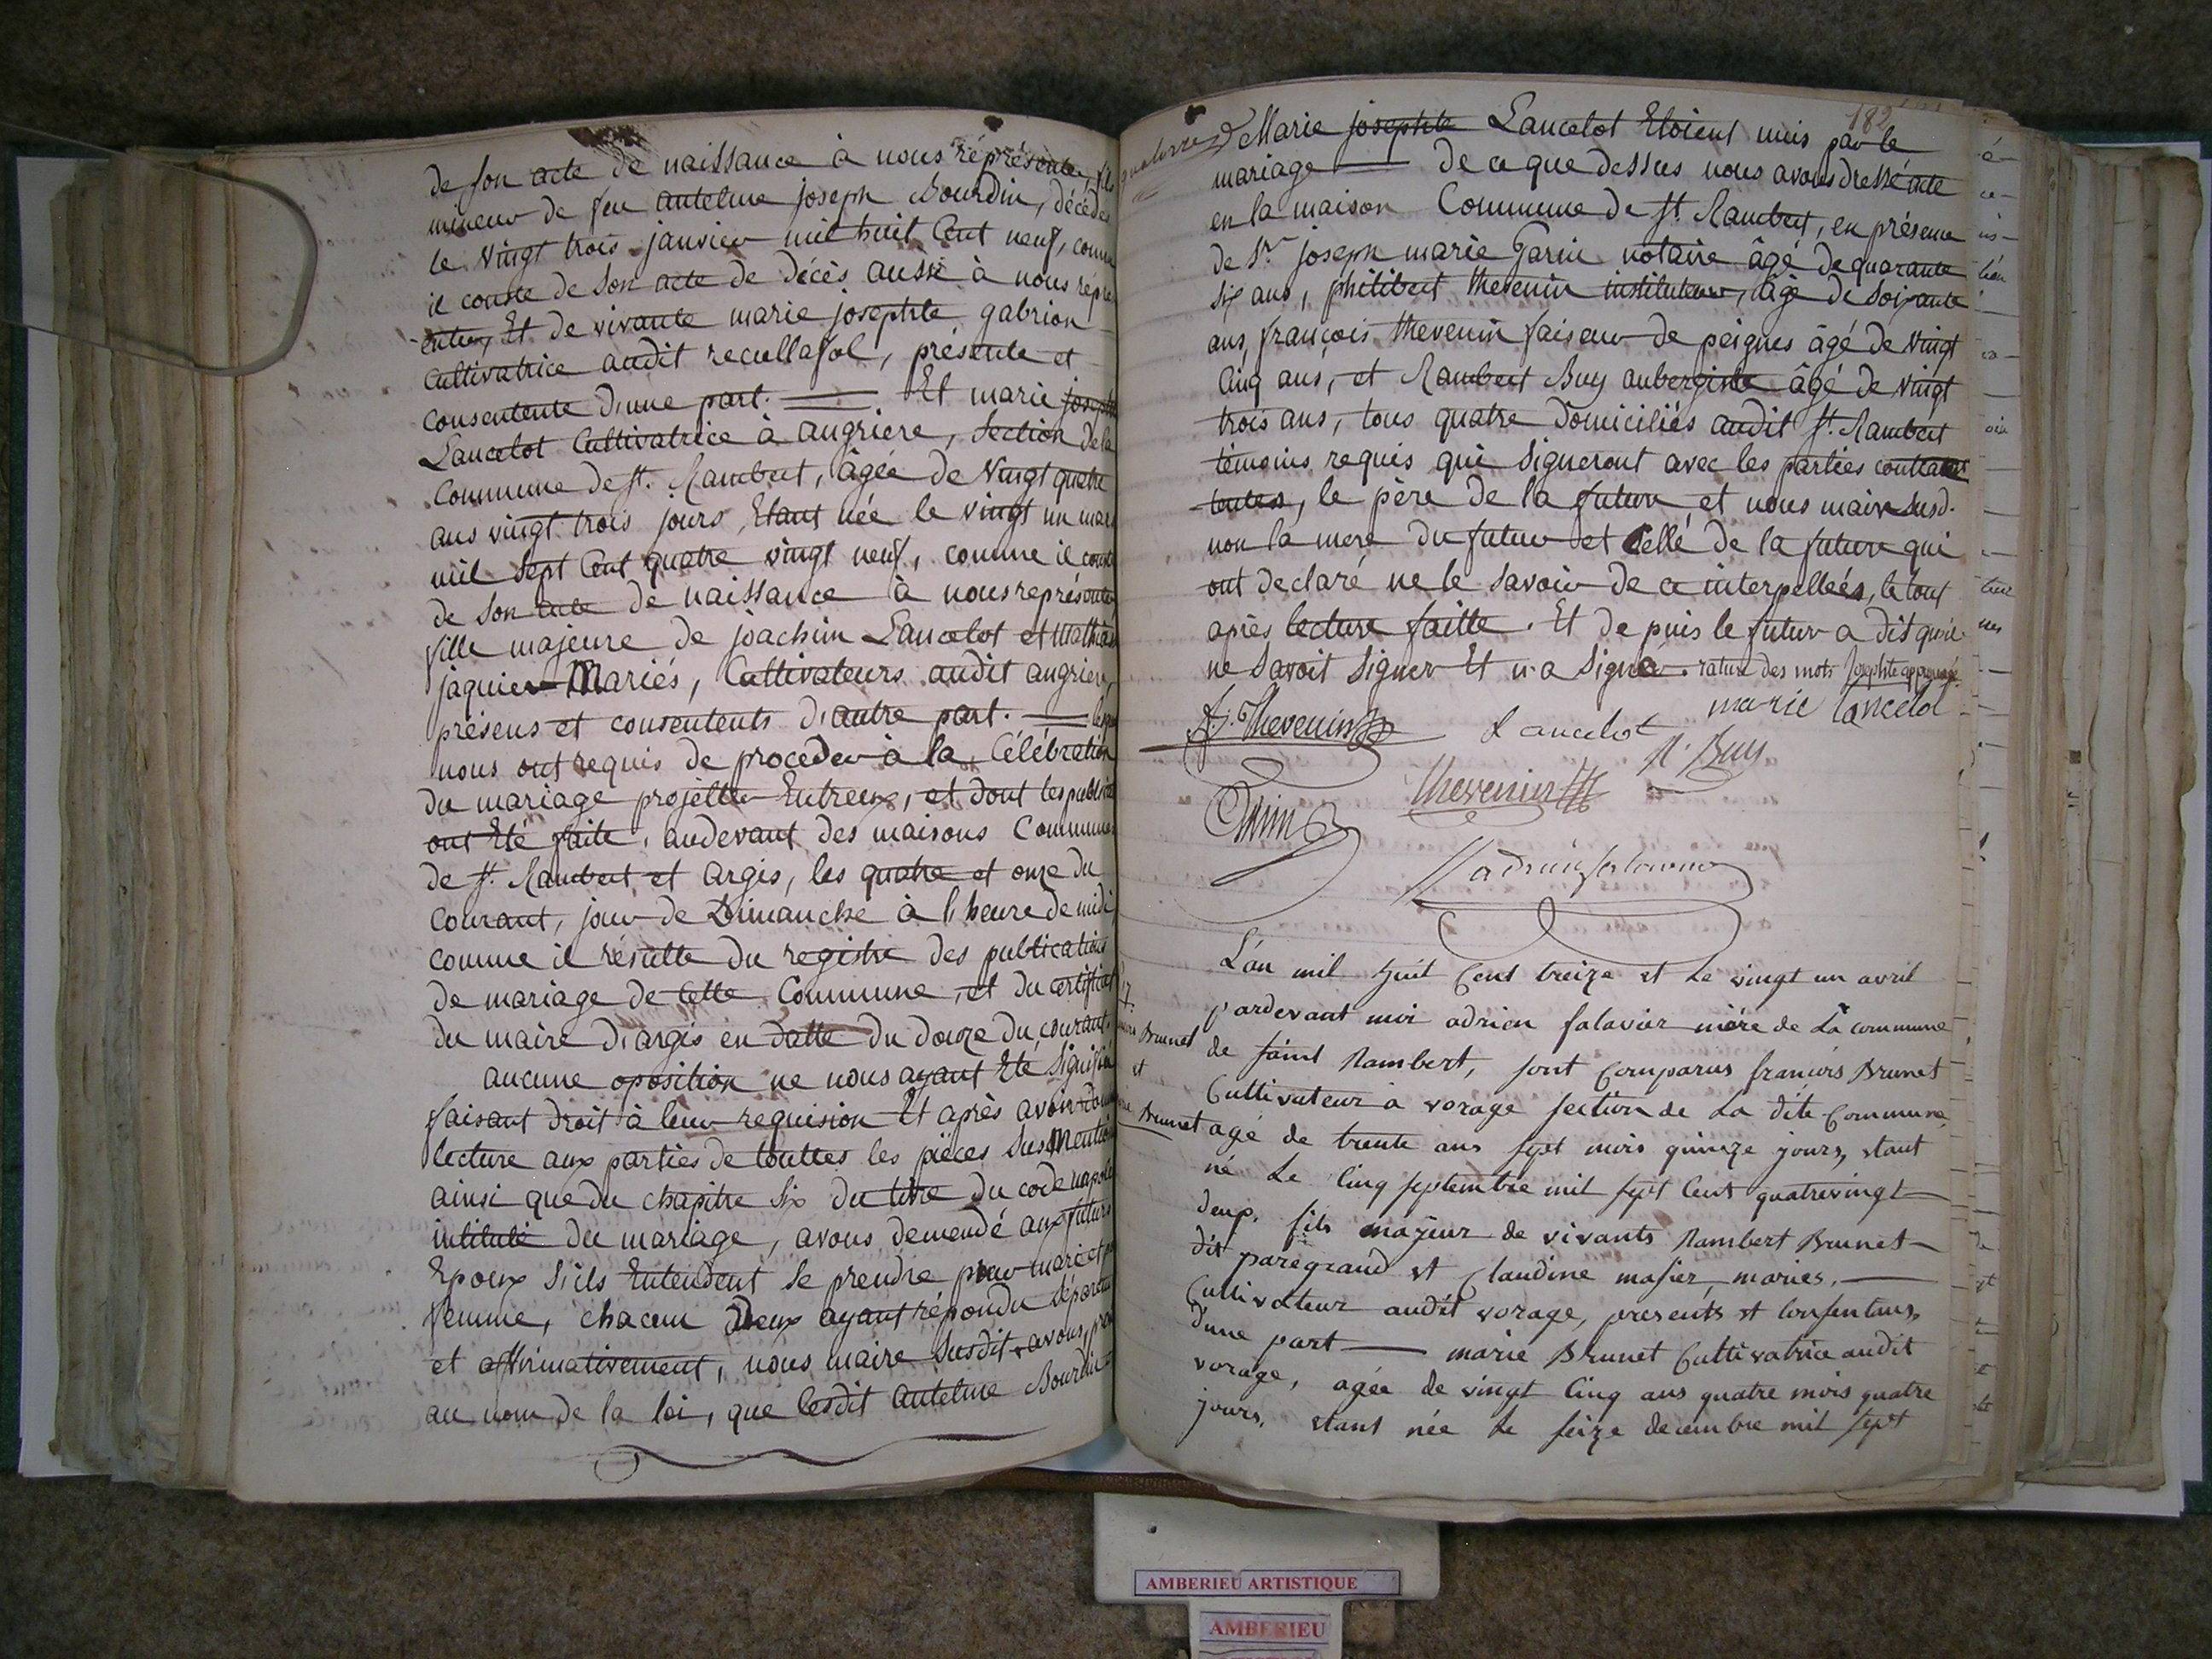 de son acte de naissance à nous réprésenté, fils
mineur de feu antelme joseph Bourdin, décédé
le vingt trois janvier mil huit Cent neuf, comme
il conste de Son acte de décès aussi à nous répré
Et de vivante marie josephte gabrion
Cultivatrice audit reculafol, présente et
consentente d'une part. — Et marie josephte
Lancelot Cultivatrice à angriere, Section de la
Commune de St. Rambert, âgée de Vingt quatre
ans vingt trois jours, Etant née le vingt un mars
mil Sept Cent quatre vingt neuf, comme il conste
de Son acte de naissance à nous représenté
fille majeure de joachim Lancelot et
jaquier Mariés, Cultivateurs audit angriere,
présens et consentents d'autre part. —
nous ont requis de proceder à la Célébration
du mariage projetter Entreeux, et dont les
ont Eté faite, audevant des maisons Communes
de St. Rambert et argis, les quatre et onze du
Courant, jour de Dimanche à l'heure de midi
comme il résulte du registre des publications
de mariage de Cette Commune, et du certificat
du maire d'argis en datte du douze du courant.
aucune oposition ne nous ayant Eté Signifié
faisant droit à leur requision Et après avoir donné
lecture aux parties de touttes les pièces Sus Mention
ainsi que du chapitre Six du titre du code napolé
intitulé du mariage, avons demendé aux futurs
Epoux S'ils Entendent Se prendre pour mari et p
femme, chacun Deux ayant répondu Séparem
et affirmativement, nous maire Susdit avons,
au nom de la loi, que lesdit antelme Bourdin
182
Marie josephte Lancelot Etoient unis par le
mariage — de ce que dessus nous avons dressé acte
en la maison Commune de St. Rambert, en présence
de Sr. joseph marie Garin notaire âgé de quarante
Six ans, philibert thevenin instituteur, âgé de Soixante
ans, françois thevenin faiseur de peignes âgé de Vingt
Cinq ans, et Rambert Buy aubergiste âgé de Vingt
trois ans, tous quatre Domiciliés audit St. Rambert
témoins requis qui Signeront avec les parties contrac
tantes, le père de la future et nous maire Susd.
non la mere du futur et Celle de la future qui
ont declaré ne le Savoir de ce interpelleés, le tout
après lecture faitte. Et depuis le futur a dit qu'il
ne Savoit Signer Et n'a Signé. rature des mots josephte approuvé.
marie lancelot
f. j. Thevenin Lancelot
R. Buy
Thevenin
L'an mil huit Cent treize et Le vingt un avril
pardevant moi adrien falavier mère de La commune
de saint Rambert, sont Comparus francois Brunet
Cultivateur a vorage section de La dite Commune,
agé de trente ans sept mois quinze jours, etant
né Le Cinq septembre mil sept Cent quatrevingt
deux. fils majeur de vivants Rambert Brunet
dit paregrand et Claudine masier, mariés, —
Cultivateur audit vorage, presents et Consentans,
d'une part — marie Brunet Cultivatrice audit
vorage, agée de vingt Cinq ans quatre mois quatre
jours, etant née Le seize decembre mil sept
Brunet
et
Brunet
AMBERIEU ARTISTIQUE
AMBERIEU